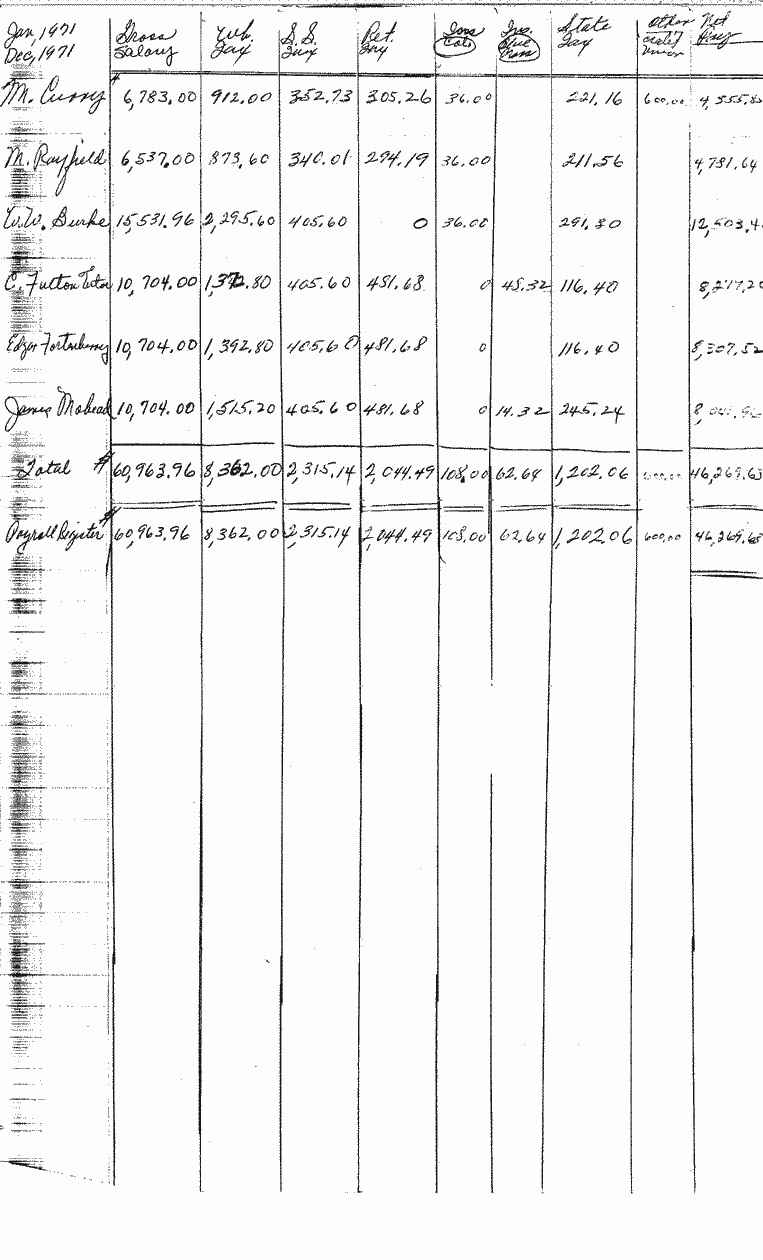 Jan, 1971 Gross Wh. S.S. Ret. Ins Ins. State Other Net
Dec, 1971 Salary Tax Tax Colo Blue Cross Tax Credit Union Pay
M. Curry $ 6,783.00 912.00 352.73 305.26 36.00 221.16 600.00 4,355.85
M. Rayfield 6,537.00 873.60 340.01 294.19 36.00 211.56 4,781.64
W.W. Burke 15,531.96 2,295.60 405.60 0 36.00 291.30 12,503.4
C. Fulton 10,704.00 1,372.80 405.60 481.68 0 48.32 116.40 8,279.20
Edgar Fortenberry 10,704.00 1,392.80 405.60 481.68 0 116.40 8,307.52
James Mohead 10,704.00 1,515.20 405.60 481.68 0 14.32 245.24 8,041.96
Total $ 60,963.96 8,362.00 2,315.14 2,044.49 108.00 62.64 1,202.06 600.00 46,269.63
Payroll Register $ 60,963.96 8,362.00 2,315.14 2,044.49 108.00 62.64 1,202.06 600.00 46,269.63